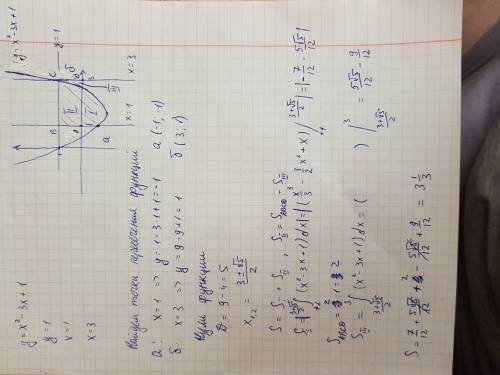 y = x² - 3x + 1
y = 1
x = 1
x = 3
y = x² - 3x + 1
y = 1
x = 1
x = 3
Найдем точки пересечения функций
а: x = 1 => y = 1 - 3·1 + 1 = -1 a (-1; -1)
б: x = 3 => y = 9 - 9 + 1 = 1 б (3; 1)
Нули функции
D = 9 - 4 = 5
x₁,₂ = (3 ± √5)/2
S = S_I + S_III , S_II = S_ABCD - S_III
S_I = |∫₁^((3+√5)/2) (x² - 3x + 1) dx| = |(x³/3 - 3/2 x² + x)|₁^((3+√5)/2) = |-7/12 - 5√5/12|
S_ABCD = 2·1 = 2
S_III = ∫_((3+√5)/2)^3 (x² - 3x + 1) dx = ( )|_((3+√5)/2)^3 = 5√5/12 - 9/12
S = 7/12 + 5√5/12 + 2 - 5√5/12 + 9/12 = 3 1/3